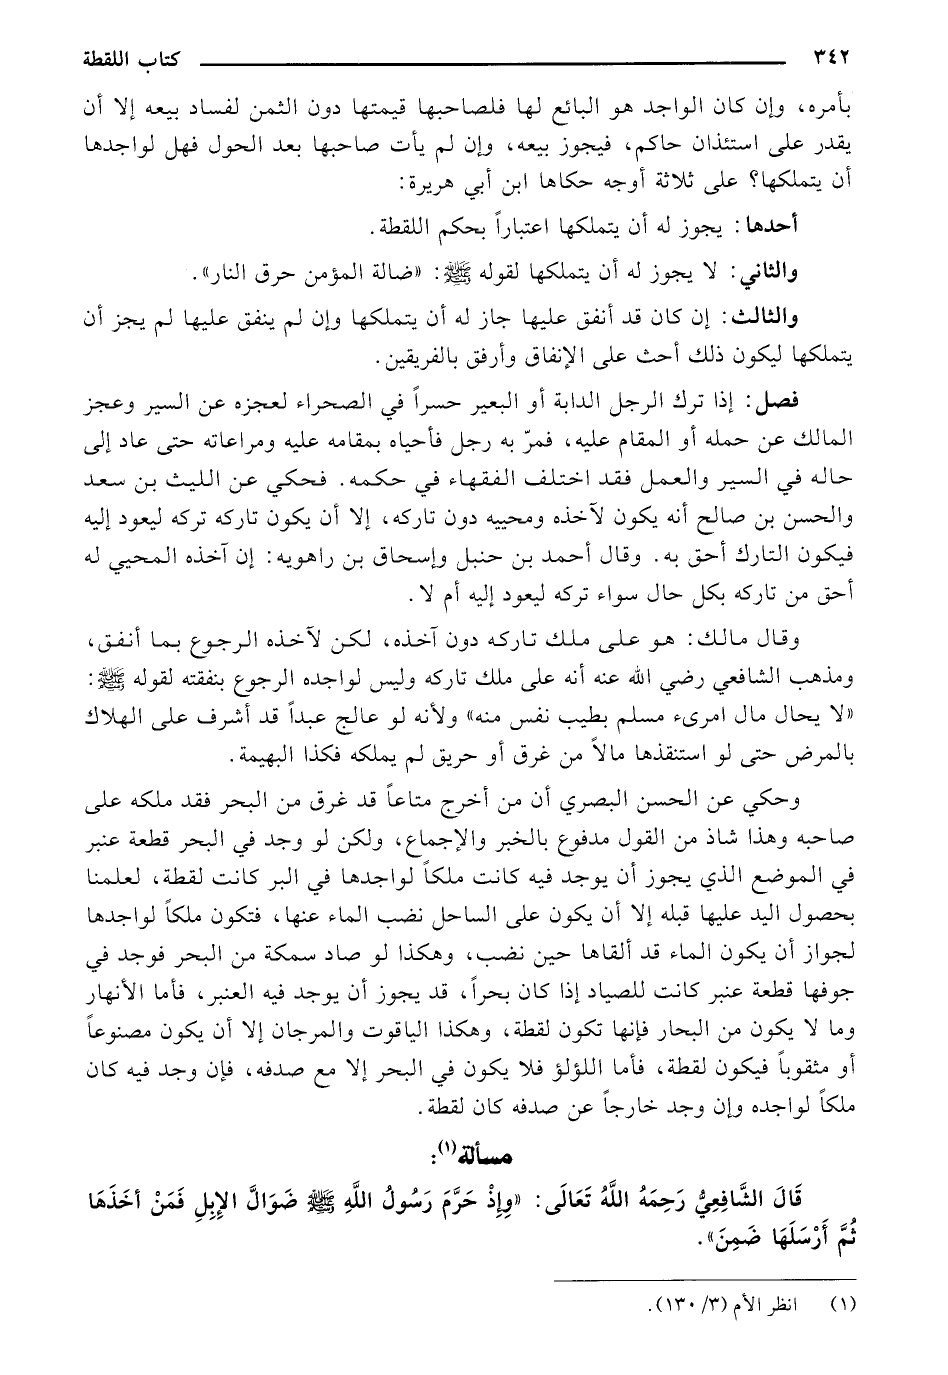 ٣٤٢ كتاب اللقطة
بأمره، وإن كان الواجد هو البائع لها فلصاحبها قيمتها دون الثمن لفساد بيعه إلا أن
يقدر على استئذان حاكم، فيجوز بيعه، وإن لم يأت صاحبها بعد الحول فهل لواجدها
أن يتملكها؟ على ثلاثة أوجه حكاها ابن أبي هريرة:
أحدها: يجوز له أن يتملكها اعتباراً بحكم اللقطة.
والثاني: لا يجوز له أن يتملكها لقوله ﷺ: «ضالة المؤمن حرق النار».
والثالث: إن كان قد أنفق عليها جاز له أن يتملكها وإن لم ينفق عليها لم يجز أن
يتملكها ليكون ذلك أحث على الإنفاق وأرفق بالفريقين.
فصل: إذا ترك الرجل الدابة أو البعير حسراً في الصحراء لعجزه عن السير وعجز
المالك عن حمله أو المقام عليه، فمرّ به رجل فأحياه بمقامه عليه ومراعاته حتى عاد إلى
حاله في السير والعمل فقد اختلف الفقهاء في حكمه. فحكي عن الليث بن سعد
والحسن بن صالح أنه يكون لآخذه ومحييه دون تاركه، إلا أن يكون تاركه تركه ليعود إليه
فيكون التارك أحق به. وقال أحمد بن حنبل وإسحاق بن راهويه: إن آخذه المحيي له
أحق من تاركه بكل حال سواء تركه ليعود إليه أم لا.
وقال مالك: هو على ملك تاركه دون آخذه، لكن لآخذه الرجوع بما أنفق،
ومذهب الشافعي رضي الله عنه أنه على ملك تاركه وليس لواجده الرجوع بنفقته لقوله ﷺ:
«لا يحال مال امرىء مسلم بطيب نفس منه» ولأنه لو عالج عبداً قد أشرف على الهلاك
بالمرض حتى لو استنقذها مالاً من غرق أو حريق لم يملكه فكذا البهيمة.
وحكي عن الحسن البصري أن من أخرج متاعاً قد غرق من البحر فقد ملكه على
صاحبه وهذا شاذ من القول مدفوع بالخبر والإجماع، ولكن لو وجد في البحر قطعة عنبر
في الموضع الذي يجوز أن يوجد فيه كانت ملكاً لواجدها في البر كانت لقطة، لعلمنا
بحصول اليد عليها قبله إلا أن يكون على الساحل نضب الماء عنها، فتكون ملكاً لواجدها
لجواز أن يكون الماء قد ألقاها حين نضب، وهكذا لو صاد سمكة من البحر فوجد في
جوفها قطعة عنبر كانت للصياد إذا كان بحراً، قد يجوز أن يوجد فيه العنبر، فأما الأنهار
وما لا يكون من البحار فإنها تكون لقطة، وهكذا الياقوت والمرجان إلا أن يكون مصنوعاً
أو مثقوباً فيكون لقطة، فأما اللؤلؤ فلا يكون في البحر إلا مع صدفه، فإن وجد فيه كان
ملكاً لواجده وإن وجد خارجاً عن صدفه كان لقطة.
مسألة(١):
قَالَ الشَّافِعِيُّ رَحِمَهُ اللَّهُ تَعَالَى: «وَإِذْ حَرَّمَ رَسُولُ اللَّهِ ﷺ ضَوَالَّ الإِبِلِ فَمَنْ أَخَذَهَا
ثُمَّ أَرْسَلَهَا ضَمِنَ».
(١) انظر الأم (٣/ ١٣٠).